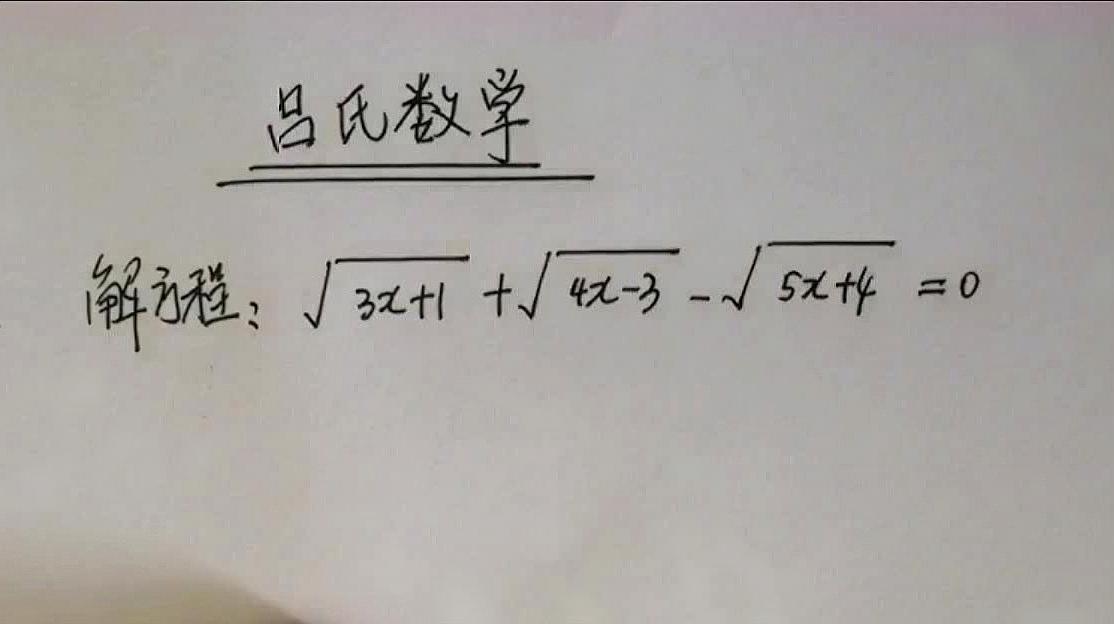 吕氏数学
解方程：√(3x+1) + √(4x-3) - √(5x+4) = 0